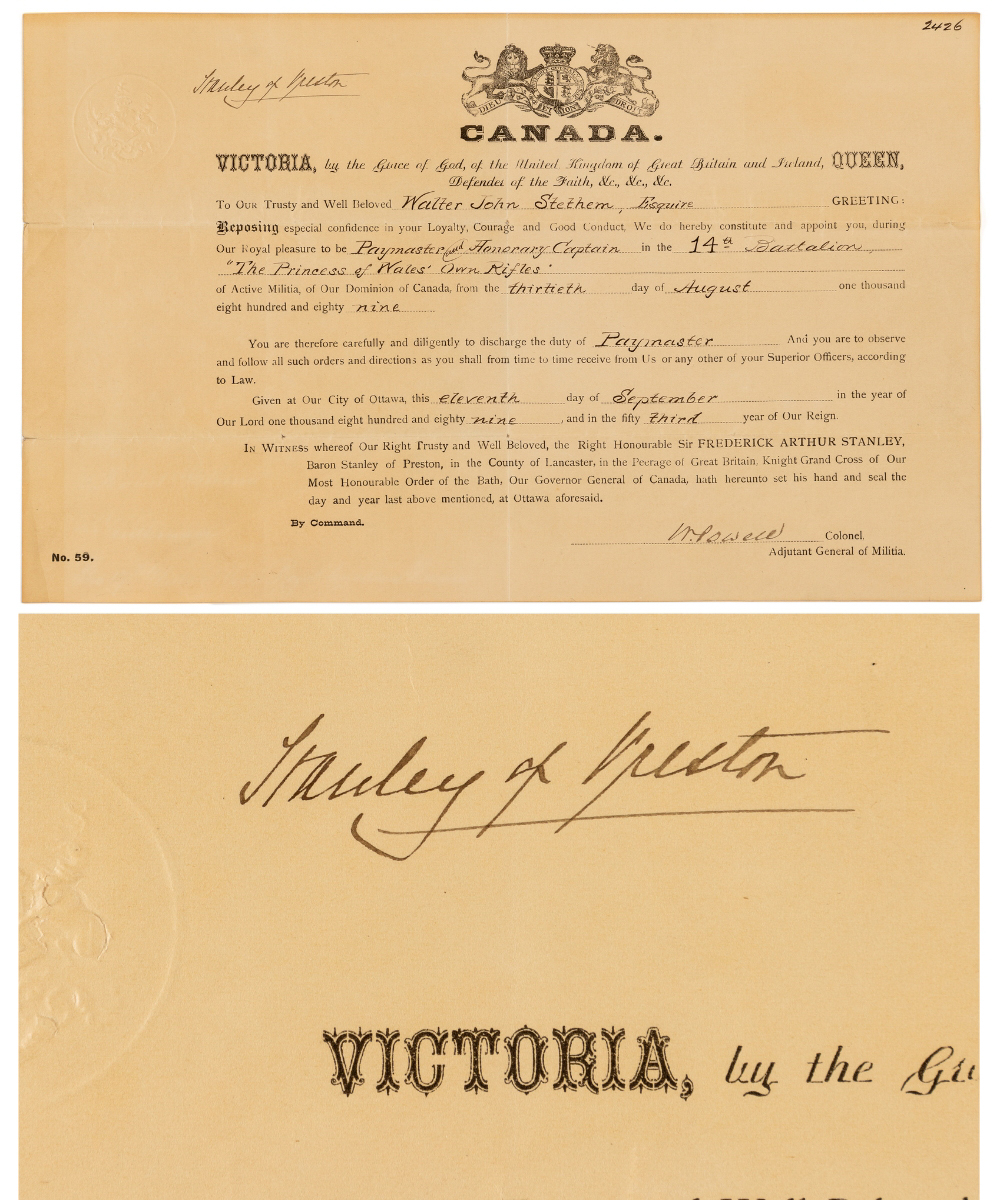 2426
Stanley of Preston
DIEU ET MON DROIT
CANADA.
VICTORIA, by the Grace of God, of the United Kingdom of Great Britain and Ireland, QUEEN,
Defender of the Faith, &c., &c., &c.
To Our Trusty and Well Beloved Walter John Stethem, Esquire GREETING:
Reposing especial confidence in your Loyalty, Courage and Good Conduct, We do hereby constitute and appoint you, during
Our Royal pleasure to be Paymaster and Honorary Captain in the 14th Battalion,
"The Princess of Wales' Own Rifles"
of Active Militia, of Our Dominion of Canada, from the thirtieth day of August one thousand
eight hundred and eighty nine
You are therefore carefully and diligently to discharge the duty of Paymaster And you are to observe
and follow all such orders and directions as you shall from time to time receive from Us or any other of your Superior Officers, according
to Law.
Given at Our City of Ottawa, this eleventh day of September in the year of
Our Lord one thousand eight hundred and eighty nine, and in the fifty third year of Our Reign.
In Witness whereof Our Right Trusty and Well Beloved, the Right Honourable Sir FREDERICK ARTHUR STANLEY,
Baron Stanley of Preston, in the County of Lancaster, in the Peerage of Great Britain, Knight Grand Cross of Our
Most Honourable Order of the Bath, Our Governor General of Canada, hath hereunto set his hand and seal the
day and year last above mentioned, at Ottawa aforesaid.
By Command.
W. Powell Colonel.
Adjutant General of Militia.
No. 59.
Stanley of Preston
VICTORIA, by the Gra